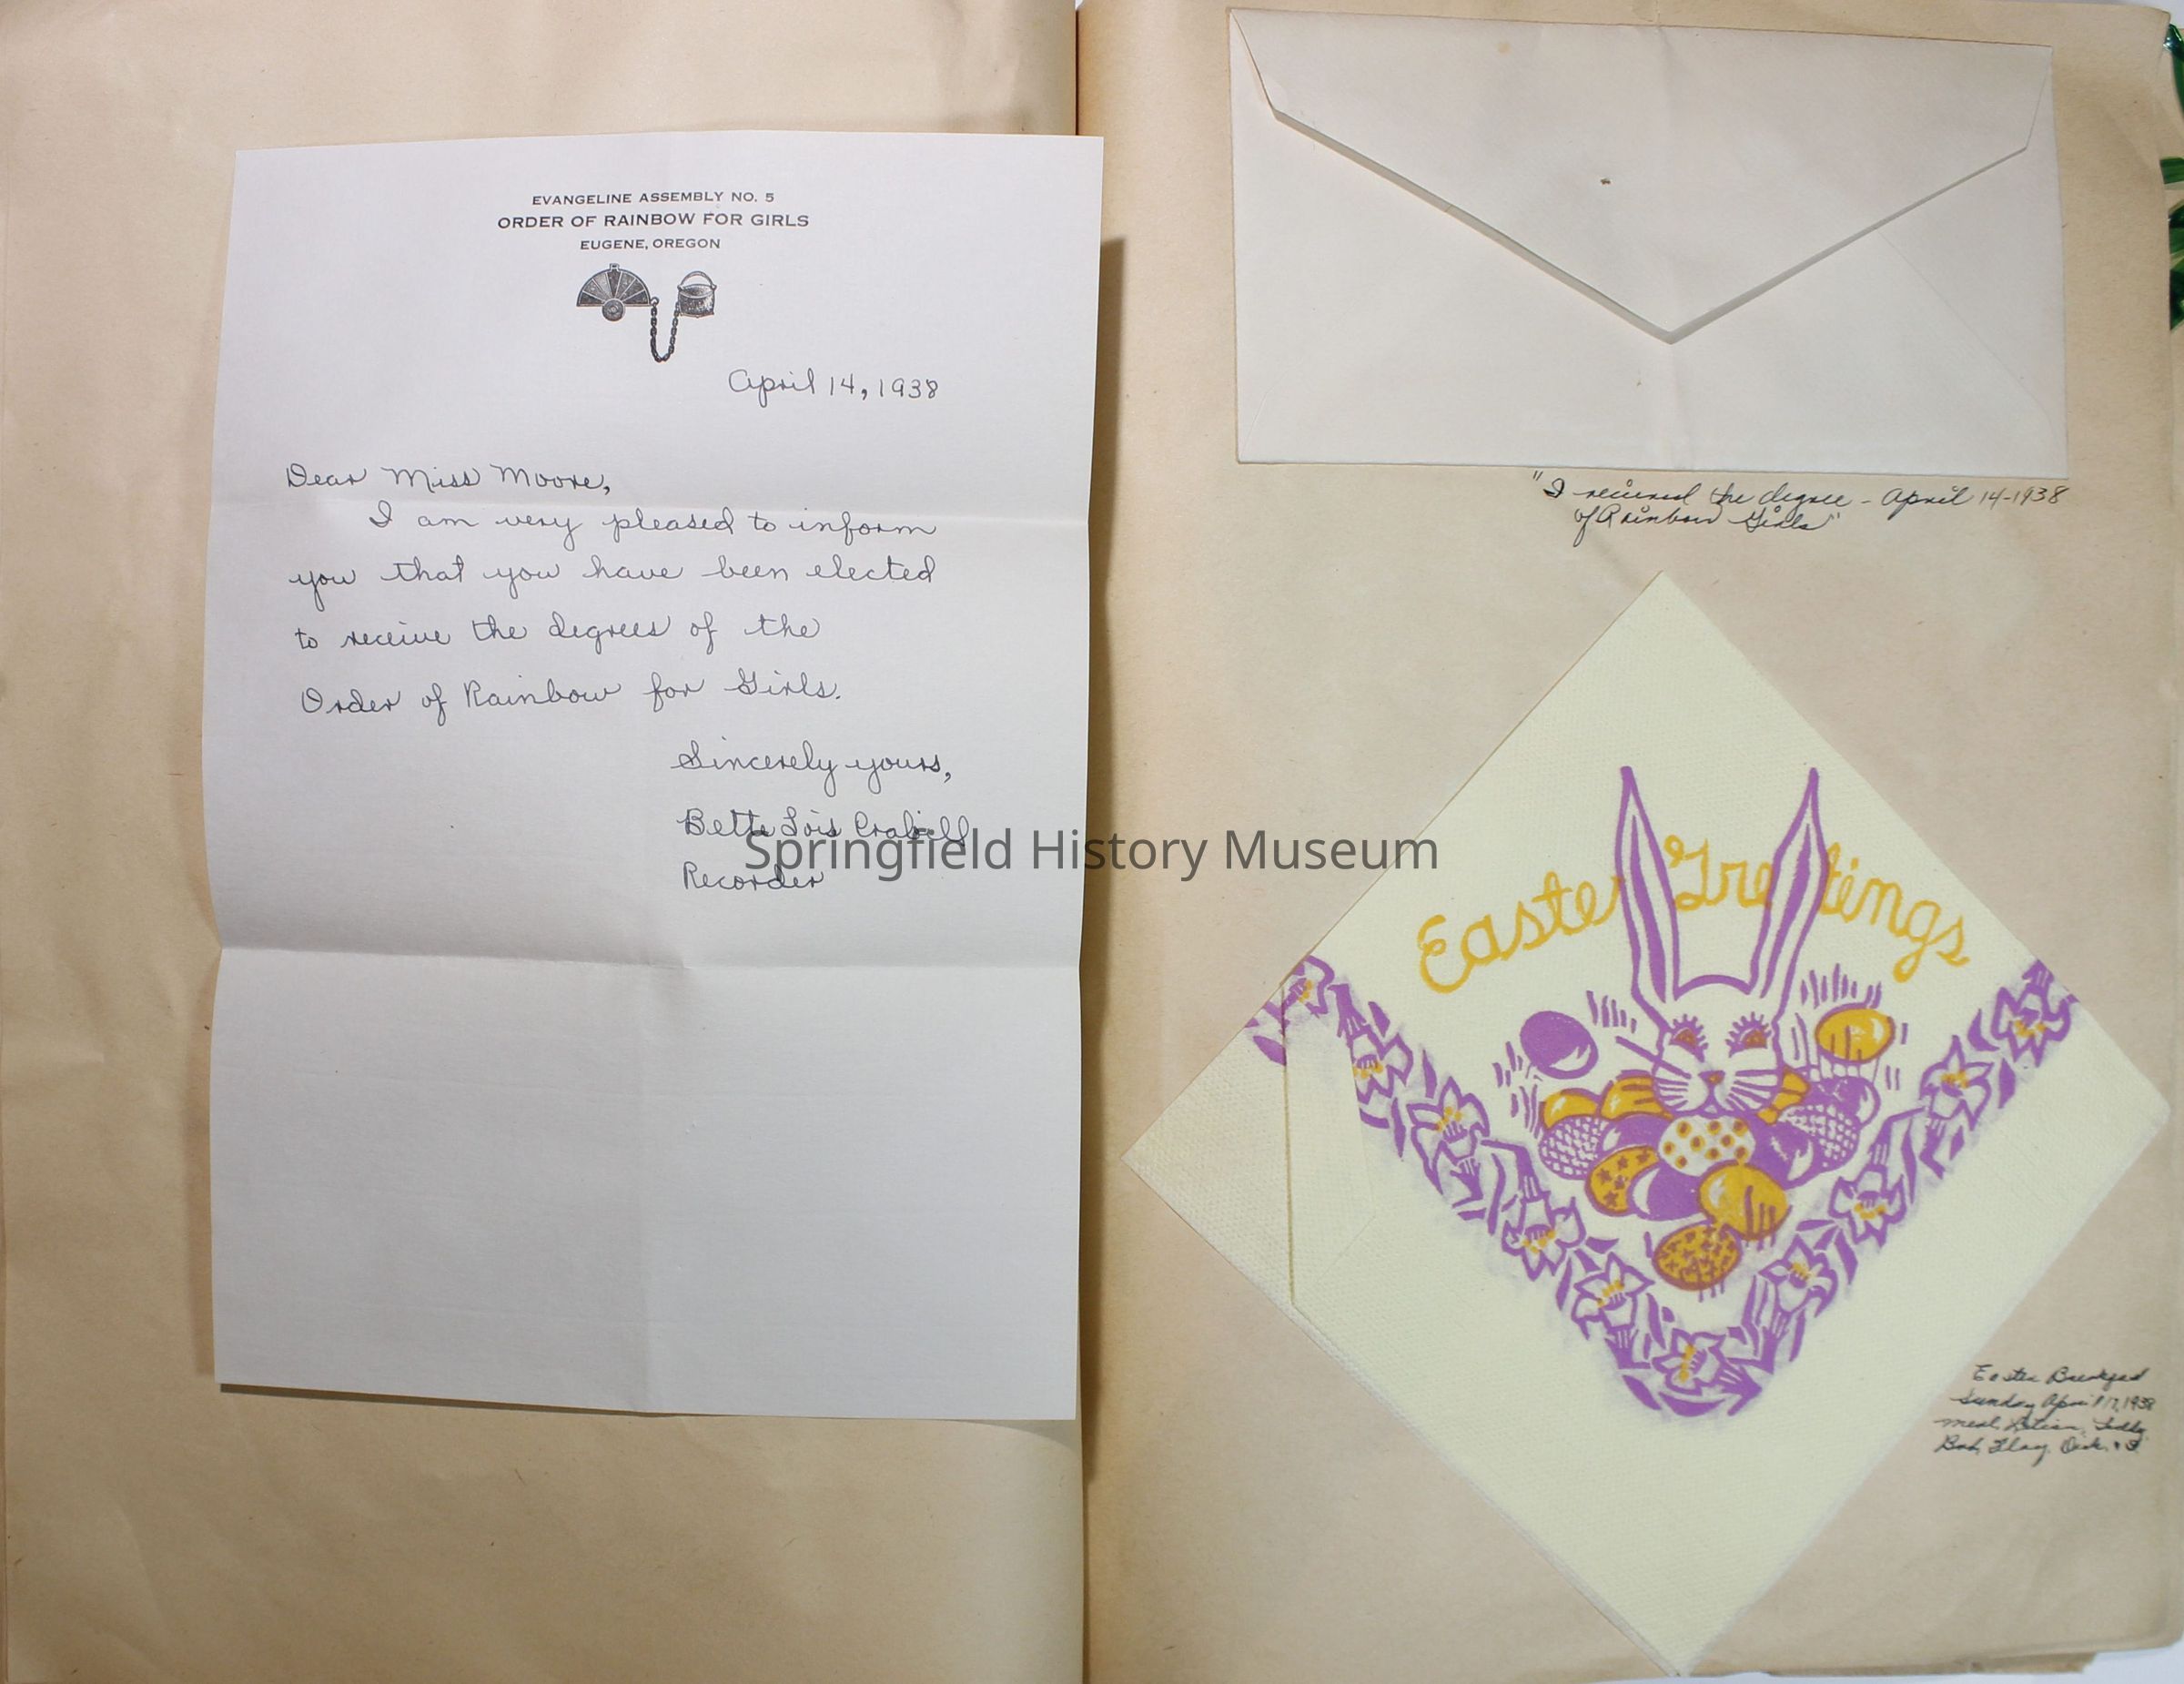 EVANGELINE ASSEMBLY NO. 5
ORDER OF RAINBOW FOR GIRLS
EUGENE, OREGON
April 14, 1938
Dear Miss Moore,
I am very pleased to inform
you that you have been elected
to receive the degrees of the
Order of Rainbow for Girls.
Sincerely yours,
Bette Lois
Recorder
Springfield History Museum
"I received the degree - April 14-1938
of Rainbow Girls"
Easter Greetings
Easter Breakfast
Sunday April 17, 1938
Bob,